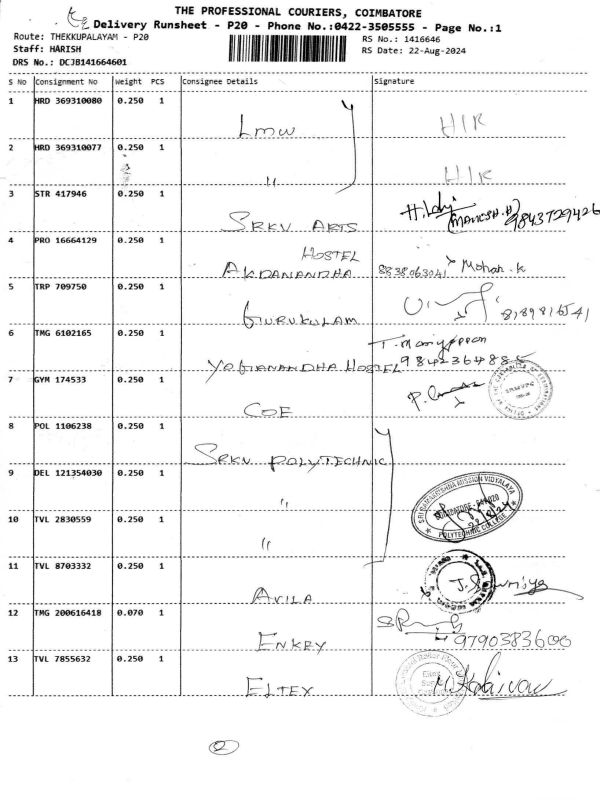 THE PROFESSIONAL COURIERS, COIMBATORE
Delivery Runsheet - P20 - Phone No.:0422-3505555 - Page No.:1
Route: THEKKUPALAYAM - P20
RS No.: 1416646
Staff: HARISH
RS Date: 22-Aug-2024
DRS No.: DCJB141664601
S No Consignment No Weight PCS Consignee Details Signature
1 HRD 369310080 0.250 1
LMW HIR
2 HRD 369310077 0.250 1
" HIR
3 STR 417946 0.250 1
SRKV ARTS 9843729426
4 PRO 16664129 0.250 1
HOSTEL
AKDANANDHA 8838063041 Mohan.k
5 TRP 709750 0.250 1
GURUKULAM
6 TMG 6102165 0.250 1
YOGIANANDHA HOSTEL
7 GYM 174533 0.250 1
COE
8 POL 1106238 0.250 1
SRKV POLYTECHNIC
9 DEL 121354030 0.250 1
"
SRI RAMAKRISHNA MISSION VIDYALAYA
COIMBATORE - 641020
POLYTECHNIC COLLEGE
22/8/24
10 TVL 2830559 0.250 1
"
11 TVL 8703332 0.250 1
AVILA
12 TMG 200616418 0.070 1
ENKEY 9790383600
13 TVL 7855632 0.250 1
ELTEX
2